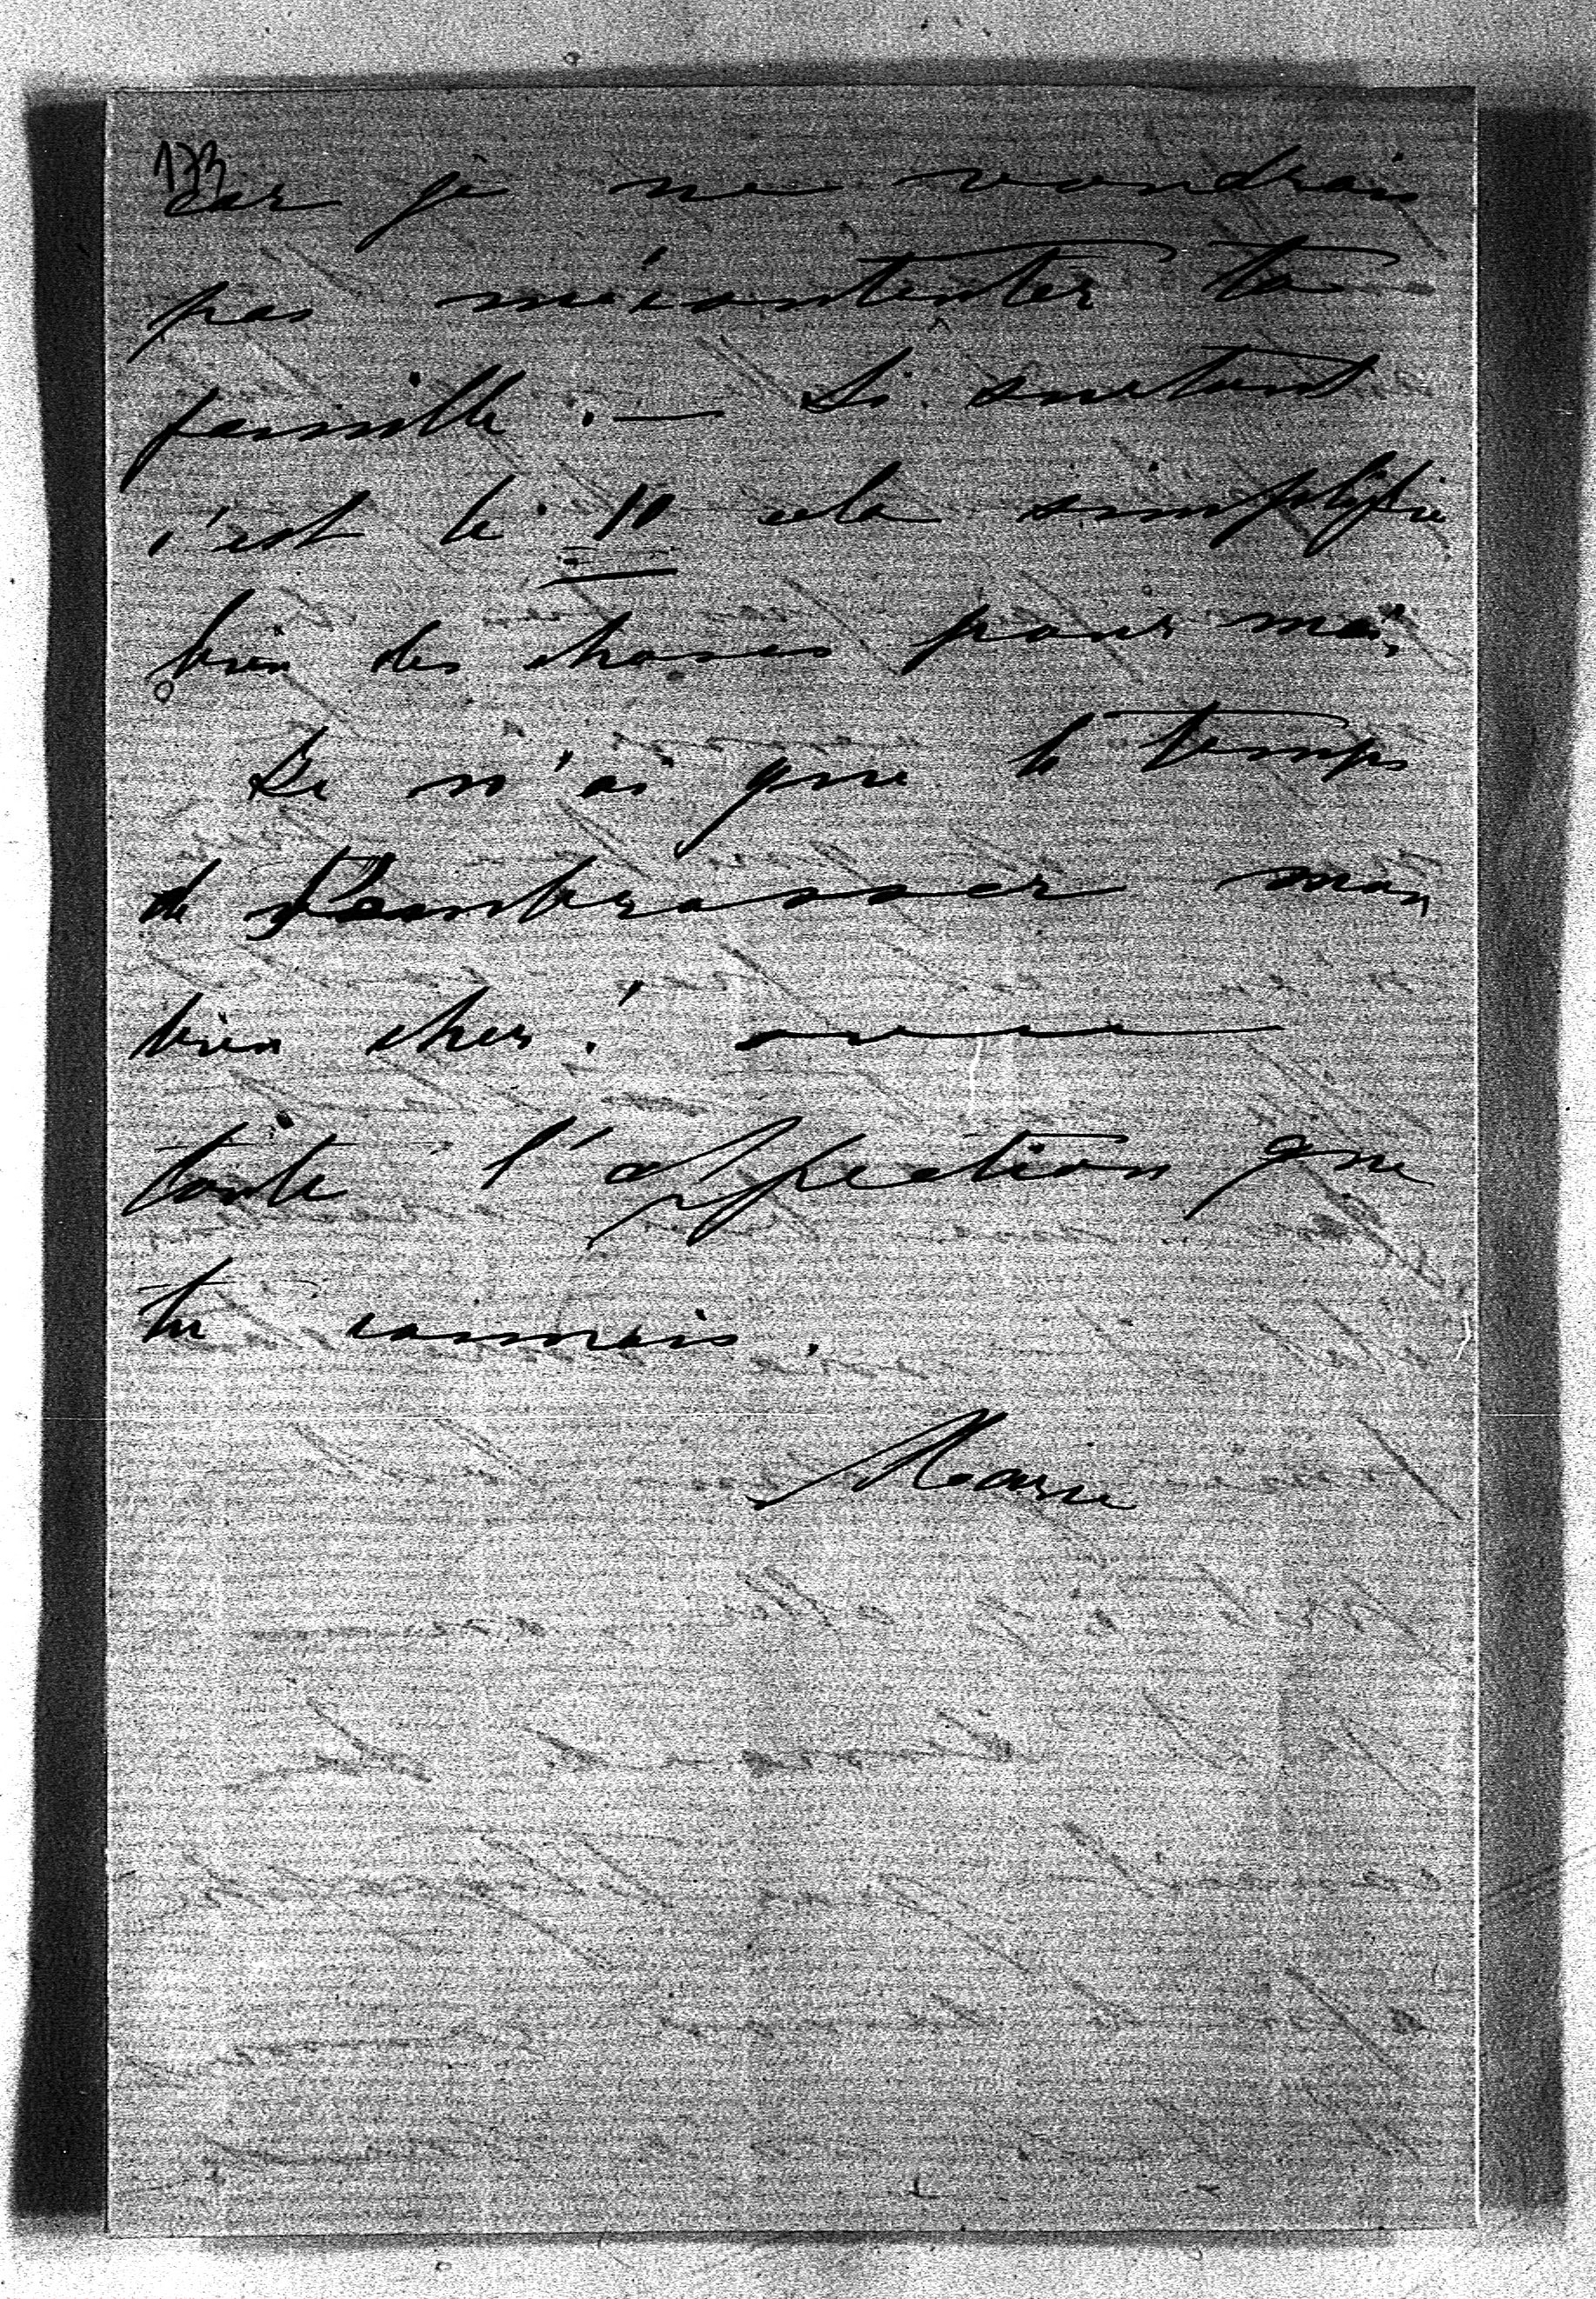 173
car je ne voudrais
pas mécontenter ta
famille. — Si surtout
c'est le 10 cela simplifie
bien des choses pour moi.
Je n'ai que le temps
de t'embrasser mon
bien cher ! avec
toute l'affection que
tu connais.